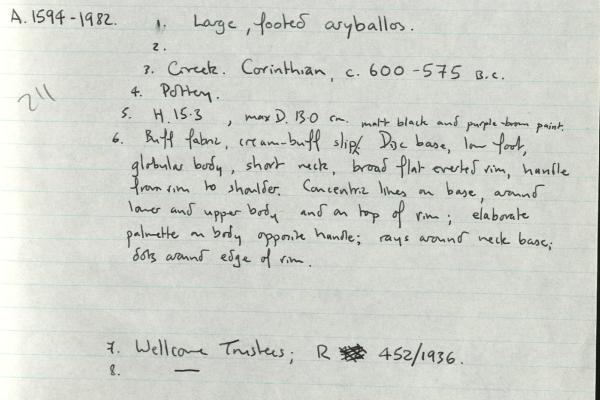 A.1594-1982. 1. Large, footed aryballos.
2.
3. Greek. Corinthian, c. 600-575 B.C.
211
4. Pottery.
5. H. 15.3, max D. 13.0 cm. matt black and purple-brown paint.
6. Buff fabric, cream-buff slip. Disc base, low foot,
globular body, short neck, broad flat everted rim, handle
from rim to shoulder. Concentric lines on base, around
lower and upper body and on top of rim; elaborate
palmette on body opposite handle; rays around neck base;
dots around edge of rim.
7. Wellcome Trustees; R 452/1936.
8. —